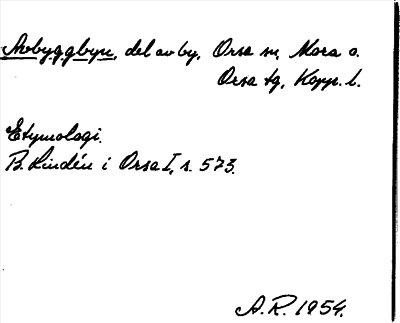 Åbyggbyn, del av by, Orsa sn, Mora o.
Orsa tg, Kopp. l.
Etymologi.
B. Lindén i Orsa I, s. 573.
A. R. 1954.